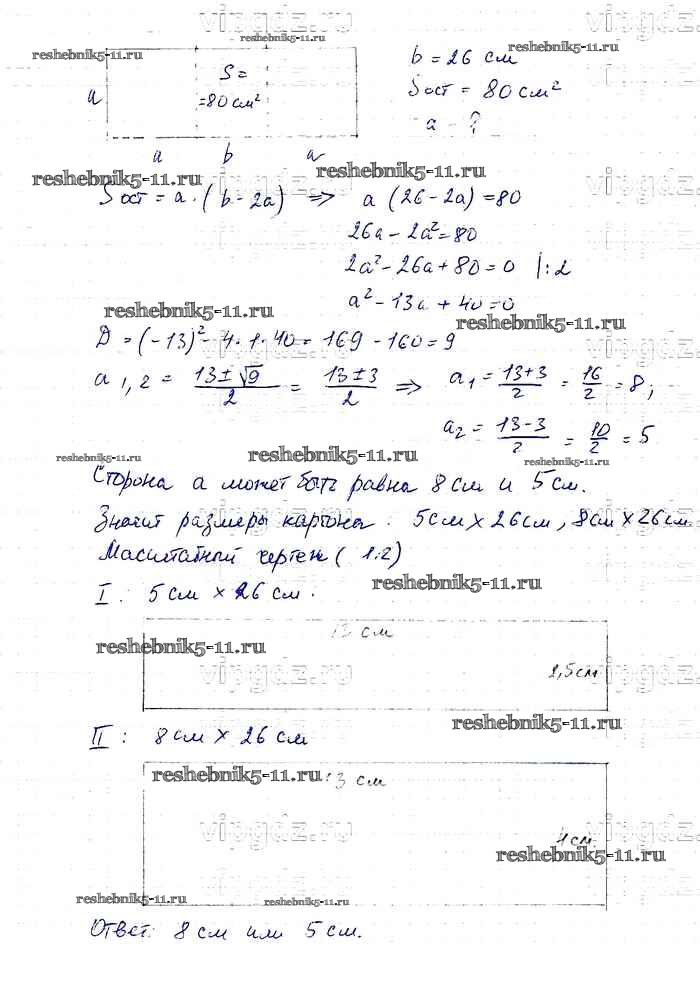 vipgdz.ru
reshebnik5-11.ru
reshebnik5-11.ru
reshebnik5-11.ru
b = 26 см
S = 
= 80 см²
a
Sост = 80 см²
a - ?
a b a
reshebnik5-11.ru
reshebnik5-11.ru
vipgdz.ru
vipgdz.ru
Sост = a · (b - 2a) ⇒ a (26 - 2a) = 80
26a - 2a² = 80
2a² - 26a + 80 = 0 |:2
a² - 13a + 40 = 0
reshebnik5-11.ru
reshebnik5-11.ru
vipgdz.ru
vipgdz.ru
D = (-13)² - 4·1·40 = 169 - 160 = 9
a 1,2 = (13 ± √9)/2 = (13 ± 3)/2 ⇒ a₁ = (13+3)/2 = 16/2 = 8;
a₂ = (13-3)/2 = 10/2 = 5
reshebnik5-11.ru
reshebnik5-11.ru
reshebnik5-11.ru
Сторона a может быть равна 8 см и 5 см.
Значит размеры картона: 5 см × 26 см, 8 см × 26 см.
vipgdz.ru
vipgdz.ru
Масштабный чертеж (1:2)
reshebnik5-11.ru
I: 5 см × 26 см.
reshebnik5-11.ru
13 см
vipgdz.ru
vipgdz.ru
2,5 см
reshebnik5-11.ru
II: 8 см × 26 см
reshebnik5-11.ru
13 см
vipgdz.ru
vipgdz.ru
4 см
reshebnik5-11.ru
reshebnik5-11.ru
reshebnik5-11.ru
Ответ: 8 см или 5 см.